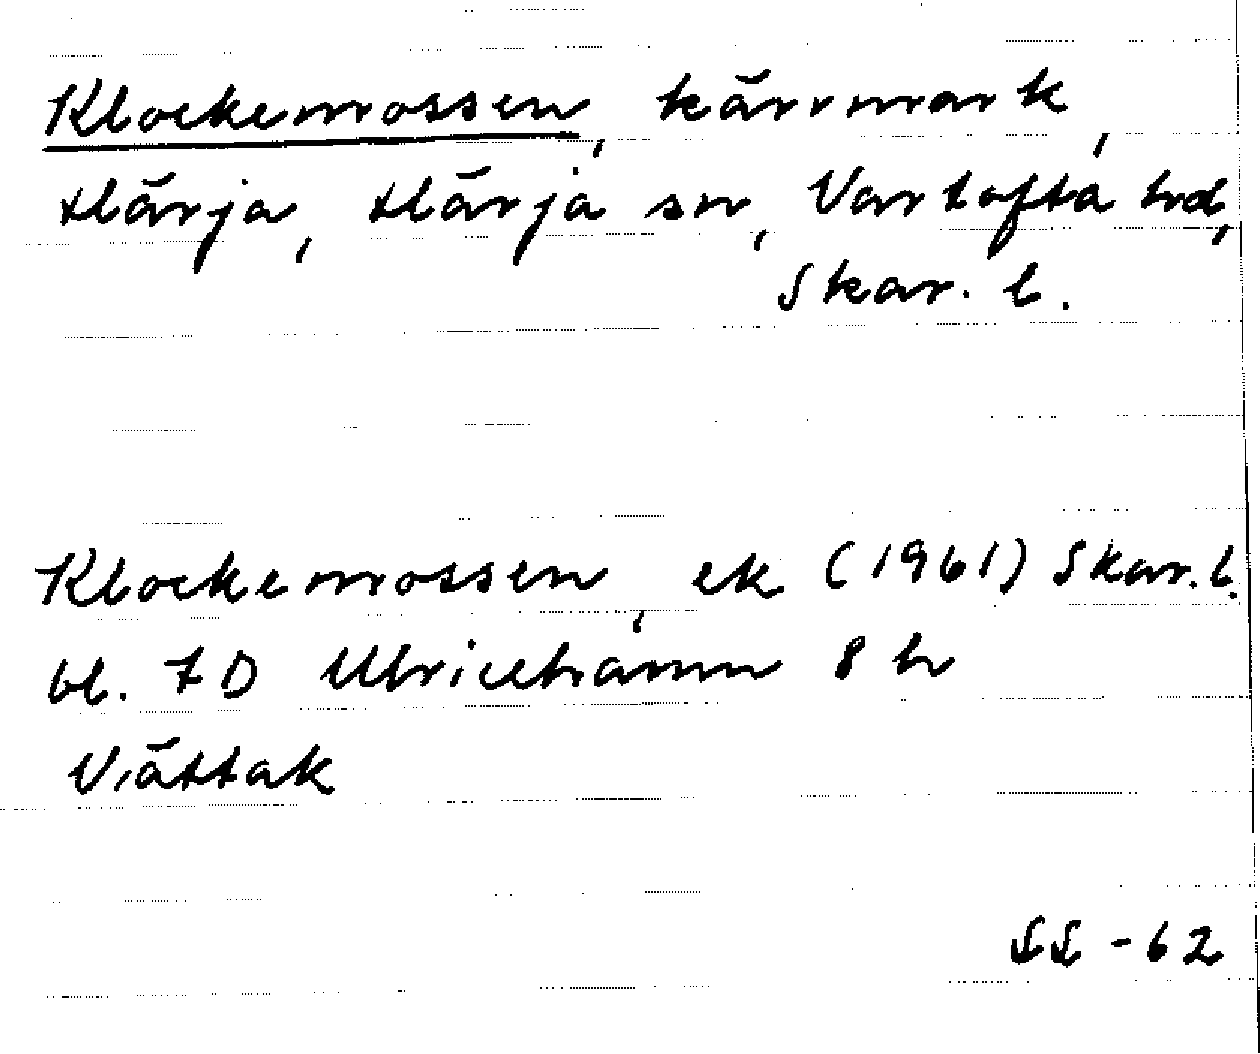 Klockemossen, kärrmark,
Härja, Härja sn, Vartofta hd,
Skar. l.
Klockemossen, ek (1961) Skar. l.
bl. 7 D Ulricehamn 8 h
Vättak
SL -62